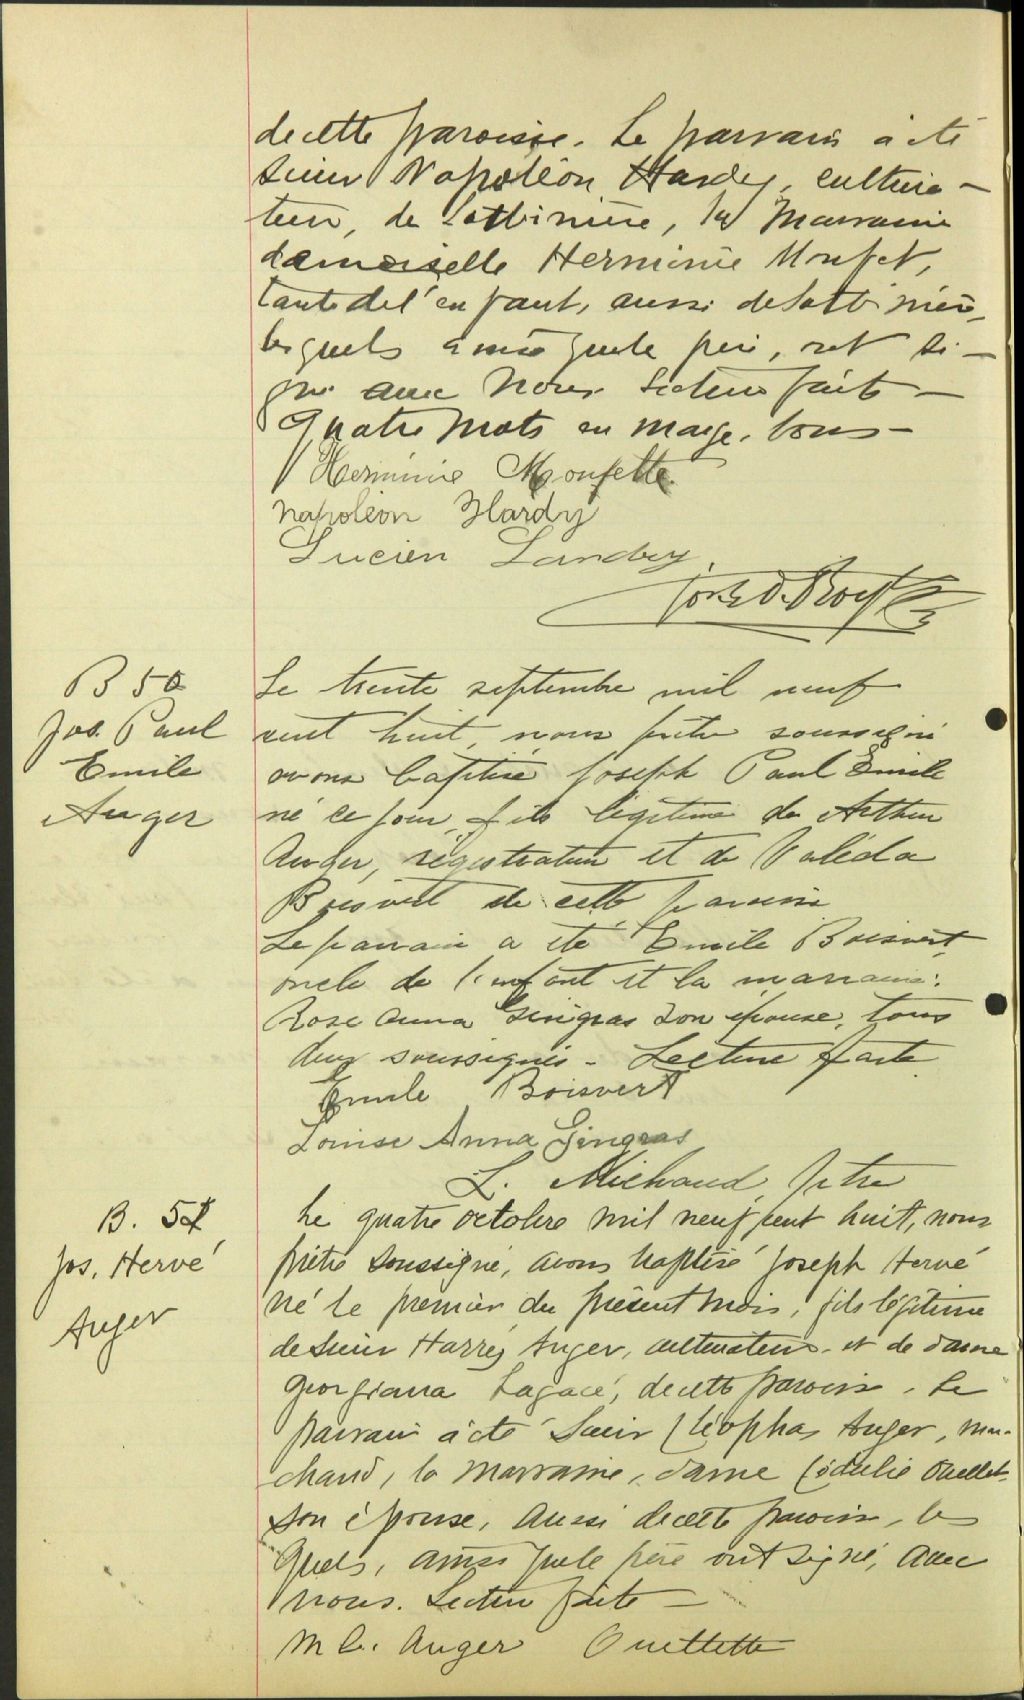 de cette paroisse. Le parrain a été
Sieur Napoléon Hardy, cultiva-
teur, de Lotbinière, la Marraine
demoiselle Herminie Monfet,
tante de l'enfant, aussi de Lotbinière,
lesquels ainsi que le père, ont si-
gné avec Nous. Lecture faite -
Quatre mots en marge. bons -
Herminie Monfette
Napoléon Hardy
Lucien Landry
B 50
Jos. Paul
Emile
Auger
Le trente septembre mil neuf
cent huit, nous prêtre soussigné
avons baptisé Joseph Paul Emile
né ce jour, fils légitime de Arthur
Auger, régistrateur et de Valéda
Boisvert de cette paroisse
Le parrain a été Emile Boisvert,
oncle de l'enfant et la marraine:
Rose Anna Gingras son épouse, tous
deux soussignés - Lecture faite
Emile Boisvert
Louise Anna Gingras
L. Michaud, Ptre
B. 51
Jos. Hervé
Auger
Le quatre octobre mil neuf cent huit, nous
prêtre soussigné, avons baptisé Joseph Hervé
né le premier du présent mois, fils légitime
de Sieur Harrey Auger, cultivateur, et de dame
Georgiana Lagacé, de cette paroisse. Le
parrain a été Sieur Cléophas Auger, mar-
chand, la marraine, dame Cédulie Ouellet
son épouse, aussi de cette paroisse, les
quels, ainsi que le père ont signé, avec
nous. Lecture faite -
M C. Auger Ouellette